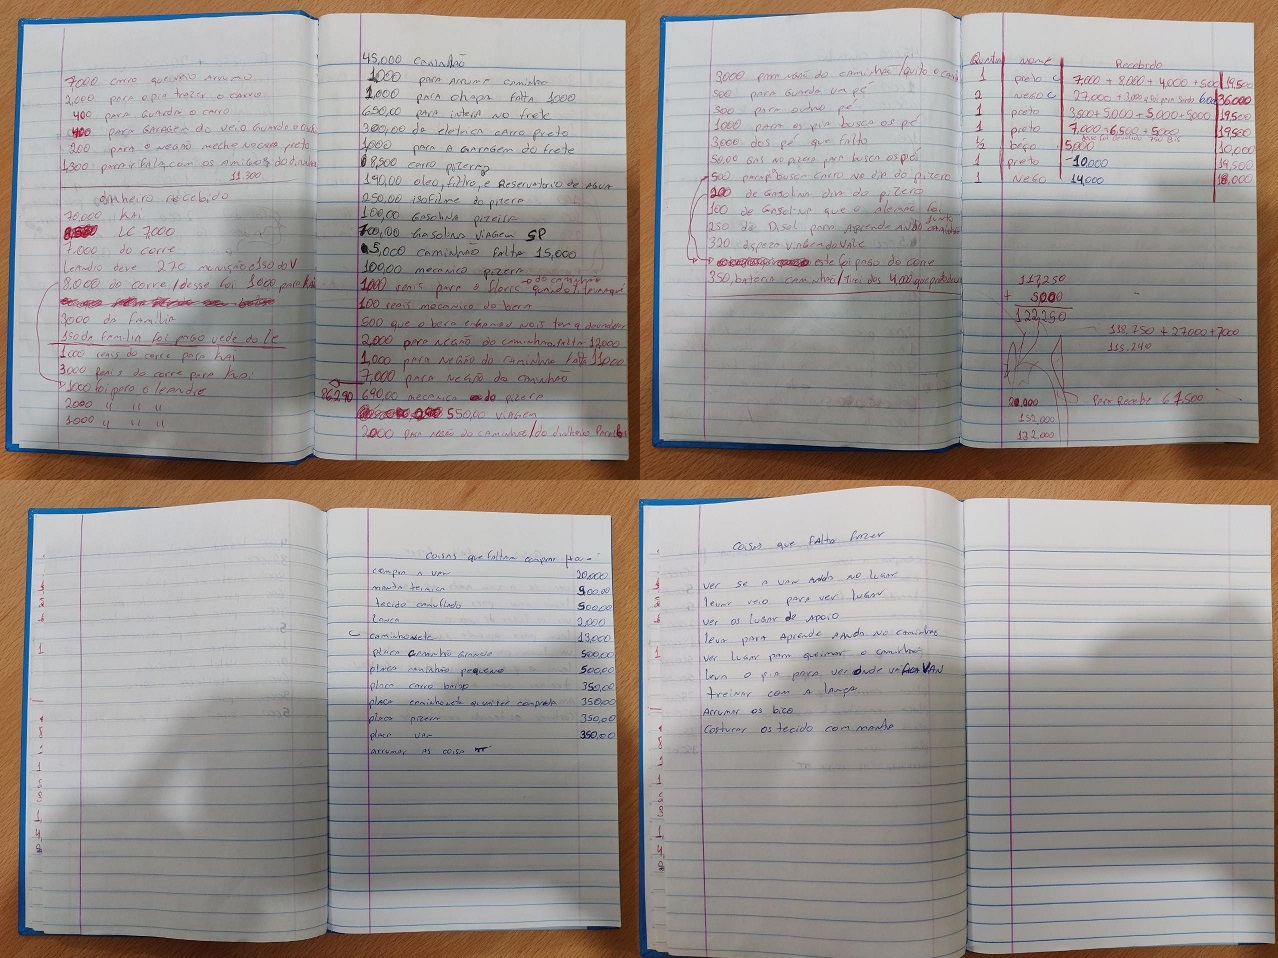 7,000 carro que veio Arrumo
2,000 para o pia trazer o carro
400 para Guarda o carro
400 para GARAGEM do veio Guarda o
200 para o negão meche no carro preto
1,300 para ir fala com os Amigos do
11.300
dinheiro recebido
70.000 KAi
LC 7,000
7,000 do corre
Leandro deve 270 munição e 150 do V
8,000 do corre/desse foi 1000 para KAi
3000 da familia
150 de familia foi pago vede do Le
1000 reais do corre para KAi
3000 reais do corre para KAi
1000 foi para o leandro
2000 " " "
1000 " " "
45,000 caminhão
1000 para Arrume caminhão
1,000 para chapa falta 1000
650,00 para intera no frete
300,00 da eletrica carro preto
1000 para A GARAGEM do frete
8,500 carro pizera
190,00 oleo, filtro, e Reservatorio de AGUA
250,00 isofilme do pizera
100,00 GASOlina pizeira
700,00 GASOlina viAGem SP
5,000 caminhão falta 15,000
100,00 mecanico pizera
1000 reais para o
100 reais mecanico do bera
500 que o bera
2,000 para negão do caminhão falta 12000
1,000 para negão do caminhão falta 11000
7,000 para negão do caminhão
86.290
690,00 mecanico do pizera
550,00 viAGem
2000 para negão do caminhão/do dinheiro
3000 para negão do caminhão/quito o
500 para Guarda um pé
500 para outro pé
1000 para os pia busca os pé
3000 dos pé que falto
50,00 Gas no pizera para busca os pé
500 para busca carro no dia do pizero
200 de Gasolina dia do pizero
100 de Gasolina que o Alemão foi junto
250 de Disol para Aprende Anda caminhão
320 dispeza viAGem do Vale
este foi pago do corre
350, bateria caminhão/Tirei dos 4,000 que
Quantia nome Recebrado
1 preto c 7,000 + 8,000 + 4,000 + 500 19,500
2 NEGO C 27,000 + 3,000 600 36,000
1 preto 3500 + 5,000 + 5,000 + 5000 19500
1 preto 7,000 + 6,500 + 5000 19500
1/2 beiço 5,000 10,000
1 preto -10,000 19,500
1 NEGO 14,000 18,000
117,250
+ 5,000
122,250
118,750 + 27,000 + 7000
115.240
20,000
152,000
172,000
Para Recebe 67,500
coisas que faltam comprar
compra a van 20,000
manta termica 500,00
tecido camuflado 500,00
Lança 2,000
caminhonete 13,000
placa caminhão Grande 500,00
placa caminhão pequeno 500,00
placa carro baixo 350,00
placa caminhonete 350,00
placa pizera 350,00
placa van 350,00
Arrumar as coisa
coisas que falta fazer
ver se a van Anda no lugar
levar veio para ver lugar
ver os lugar de Apoio
leva para Aprende Anda no caminhão
ver lugar para queimar o caminhão
leva o pia para ver onde vai fica VAN
treinar com a lança
Arrumar os bico
Costurar os tecido com manta